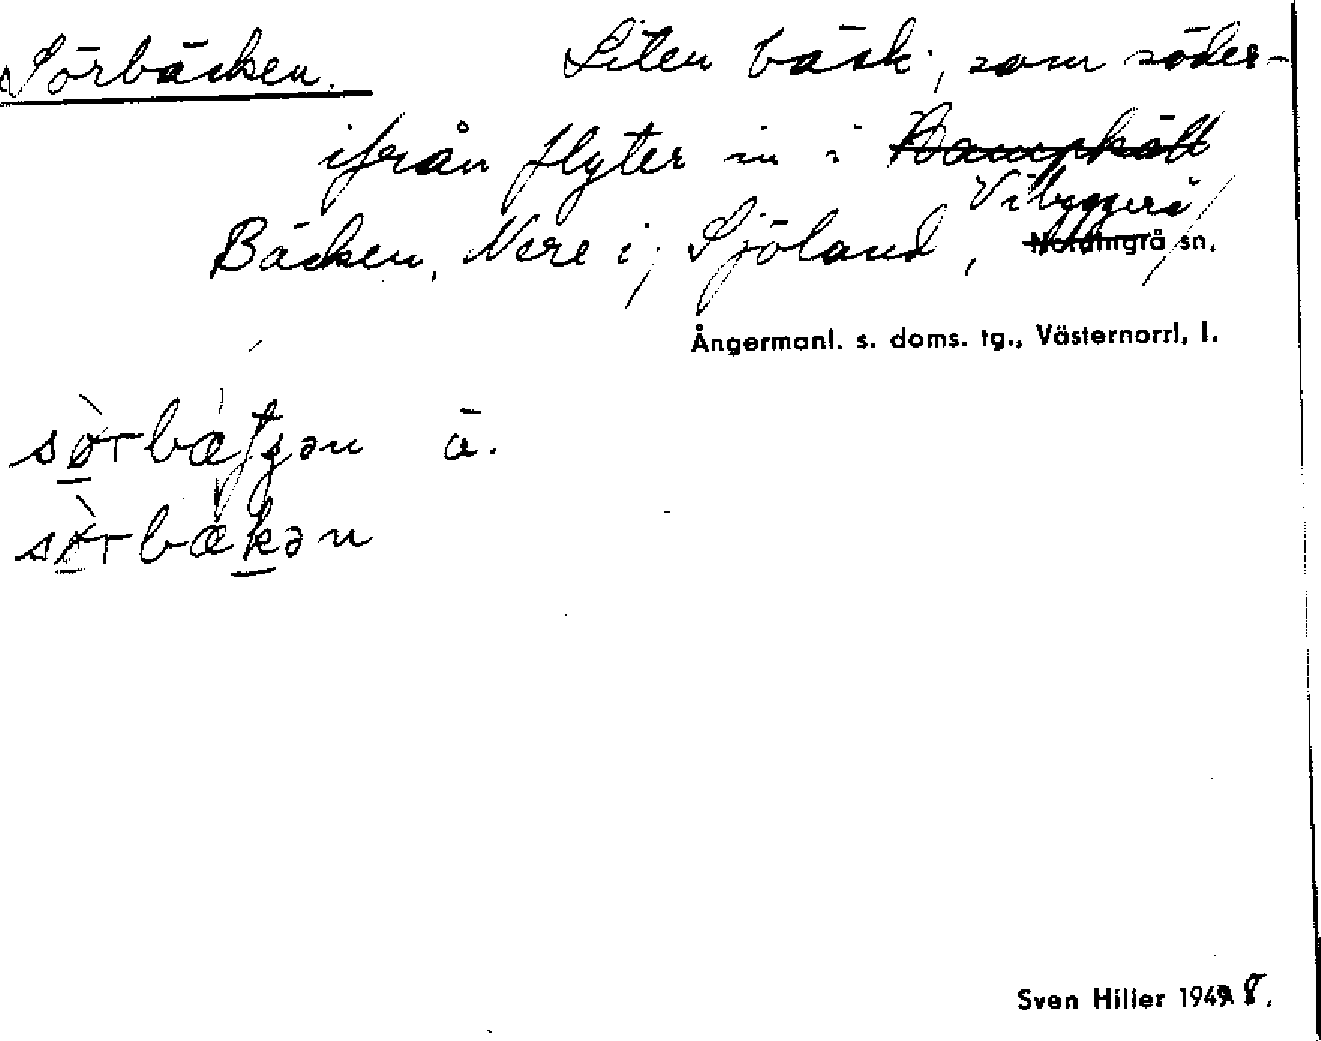 Sörbäcken. Liten bäck, som söder-
ifrån flyter in i
Bäcken, Nere i, Sjöland, Vibyggerå
Nordingrå sn.
Ångermanl. s. doms. tg., Västernorrl. l.
sø̀rbæ̀tʃən ä.
sø̀rbækən
Sven Hiller 1949 8.